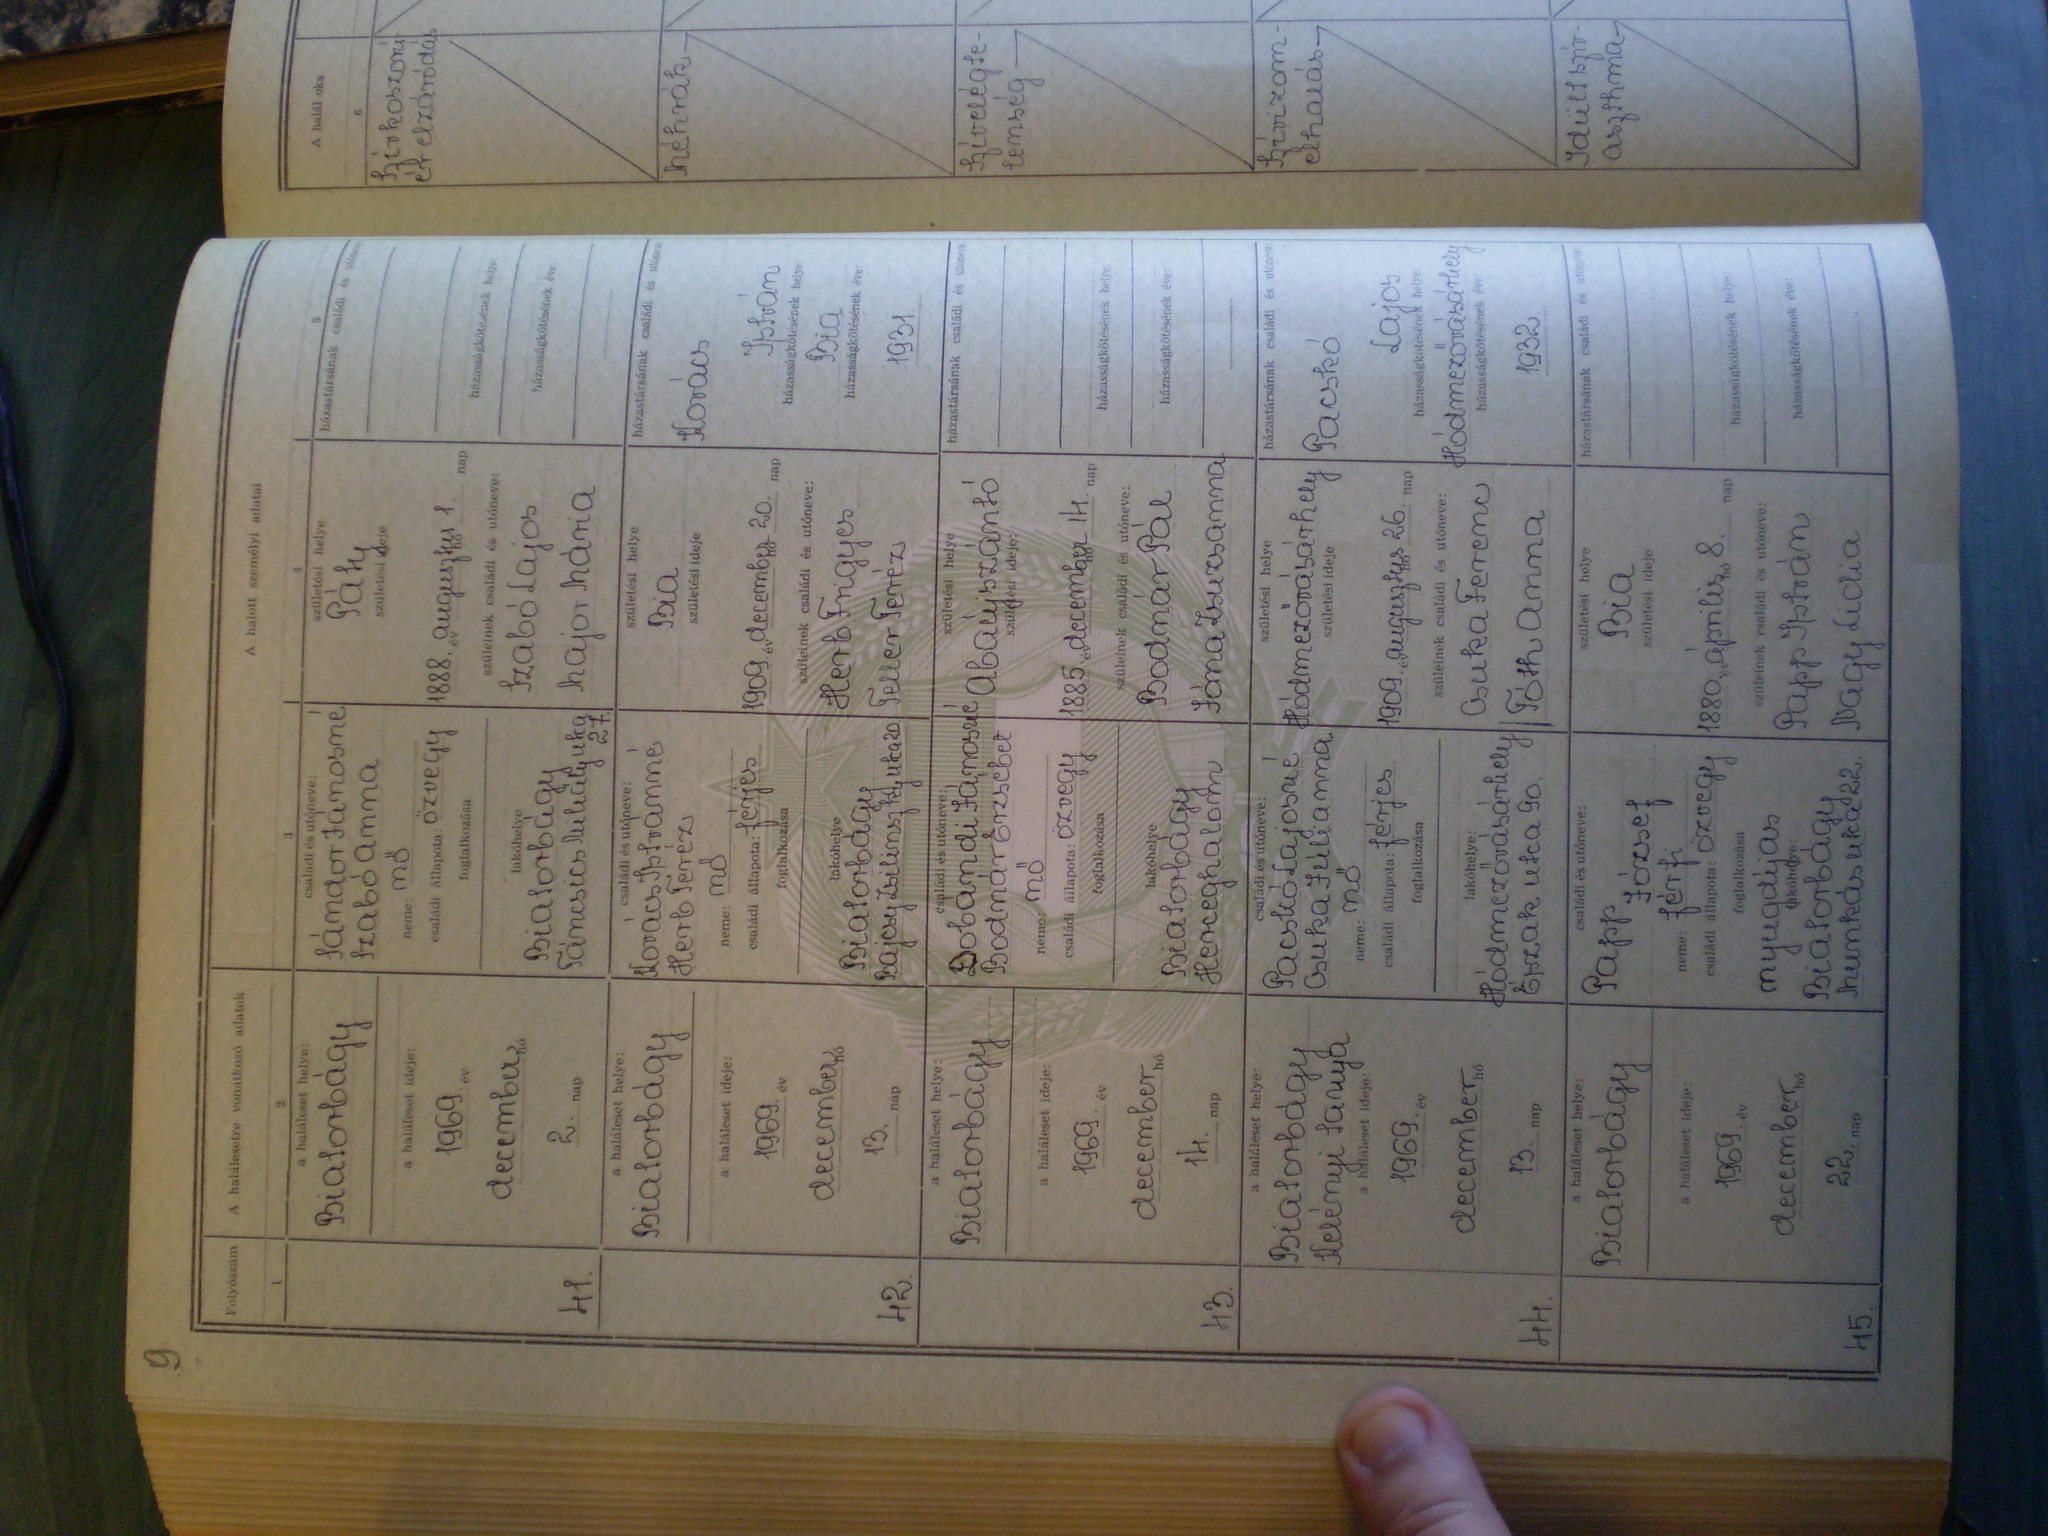 9
Folyószám
A halálesetre vonatkozó adatok
A halott személyi adatai
A halál oka
1
2
3
4
5
6
41.
a haláleset helye:
Biatorbágy
a haláleset ideje:
1969. év
december hó
2. nap
családi és utóneve:
Sándor Jánosné
Szabó Anna
neme: nő
családi állapota: özvegy
foglalkozása
lakóhelye
Biatorbágy
Táncsics Mihály utca
27.
születési helye
Páty
születési ideje
1888. év augusztus hó 1. nap
szüleinek családi és utóneve:
Szabó Lajos
Major Mária
házastársának családi és utóneve
házasságkötésének helye:
házasságkötésének éve:
Szívkoszorú-
ér elzáródás
42.
a haláleset helye:
Biatorbágy
a haláleset ideje:
1969. év
december hó
13. nap
családi és utóneve:
Kovács Istvánné
Herb Teréz
neme: nő
családi állapota: férjes
foglalkozása
lakóhelye
Biatorbágy
Bajcsy Zsilinszky utca 20
születési helye
Bia
születési ideje
1909. év december hó 20. nap
szüleinek családi és utóneve:
Herb Frigyes
Feller Teréz
házastársának családi és utóneve
Kovács
István
házasságkötésének helye:
Bia
házasságkötésének éve:
1931.
Méhrák
43.
a haláleset helye:
Biatorbágy
a haláleset ideje:
1969. év
december hó
14. nap
családi és utóneve:
Dobandi Jánosné
Bodnár Erzsébet
neme: nő
családi állapota: özvegy
foglalkozása
lakóhelye
Biatorbágy
Herceghalom
születési helye
Abaújszántó
születési ideje:
1885. év december hó 14. nap
szüleinek családi és utóneve:
Bodnár Pál
Jóna Zsuzsanna
házastársának családi és utóneve
házasságkötésének helye:
házasságkötésének éve:
Szívelégte-
lenség
44.
a haláleset helye:
Biatorbágy
Kelényi Tanya
a haláleset ideje:
1969. év
december hó
13. nap
családi és utóneve:
Pacskó Lajosné
Csuka Júlianna
neme: nő
családi állapota: férjes
foglalkozása
lakóhelye:
Hódmezővásárhely
Észak utca 90.
születési helye
Hódmezővásárhely
születési ideje
1909. év augusztus hó 26. nap
szüleinek családi és utóneve:
Csuka Ferenc
Tóth Anna
házastársának családi és utóneve
Pacskó
Lajos
házasságkötésének helye:
Hódmezővásárhely
házasságkötésének éve:
1932.
Szívizom-
elhalás
45.
a haláleset helye:
Biatorbágy
a haláleset ideje:
1969. év
december hó
22. nap
családi és utóneve:
Papp
József
neme: férfi
családi állapota: özvegy
foglalkozása
nyugdíjas
lakóhelye:
Biatorbágy
Munkás utca 22.
születési helye
Bia
születési ideje
1880. év április hó 8. nap
szüleinek családi és utóneve:
Papp István
Nagy Lidia
házastársának családi és utóneve
házasságkötésének helye:
házasságkötésének éve:
Idült szív-
aszthma